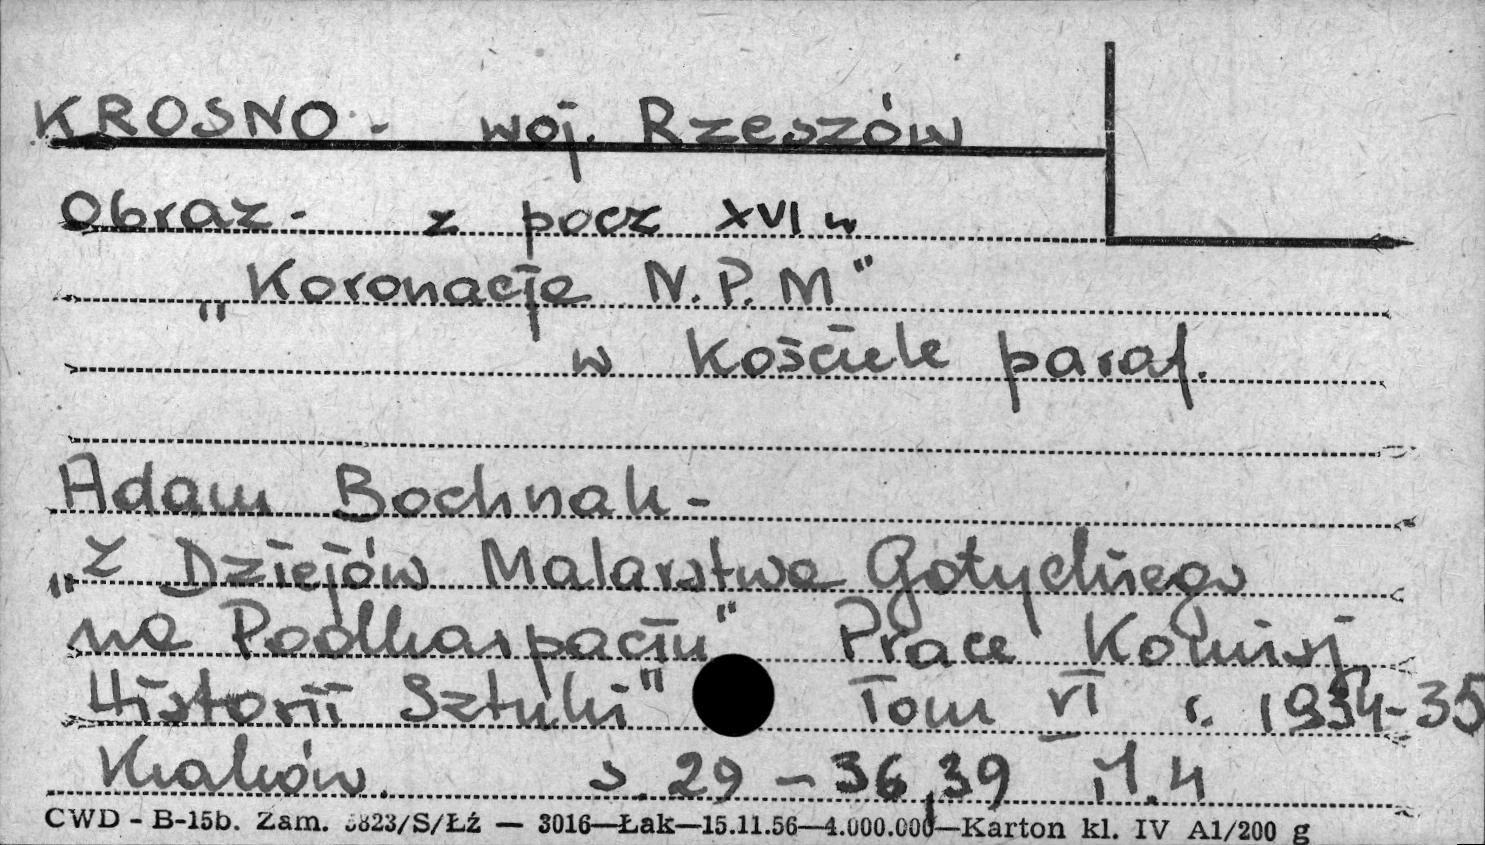 KROSNO - woj. Rzeszów
Obraz - z pocz XVI w
„Koronacje N.P.M"
w Kościele paraf.
Adam Bochnak -
„Z Dziejów Malarstwa Gotyckiego
na Podkarpaciu" Prace Komisj
Historii Sztuki" Tom VI r. 1934-35
Kraków. s. 29 - 36, 39 il. 4
CWD - B-15b. Zam. 3823/S/Łź — 3016—Łak—15.11.56—4.000.000—Karton kl. IV A1/200 g